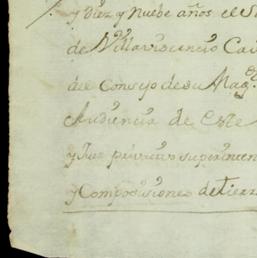 y diez y nuebe años el S
de Villavisencio Cav
del Consejo de su Mag.d
Audiencia de este
y Juez privativo superinten
y Composisiones de tierra